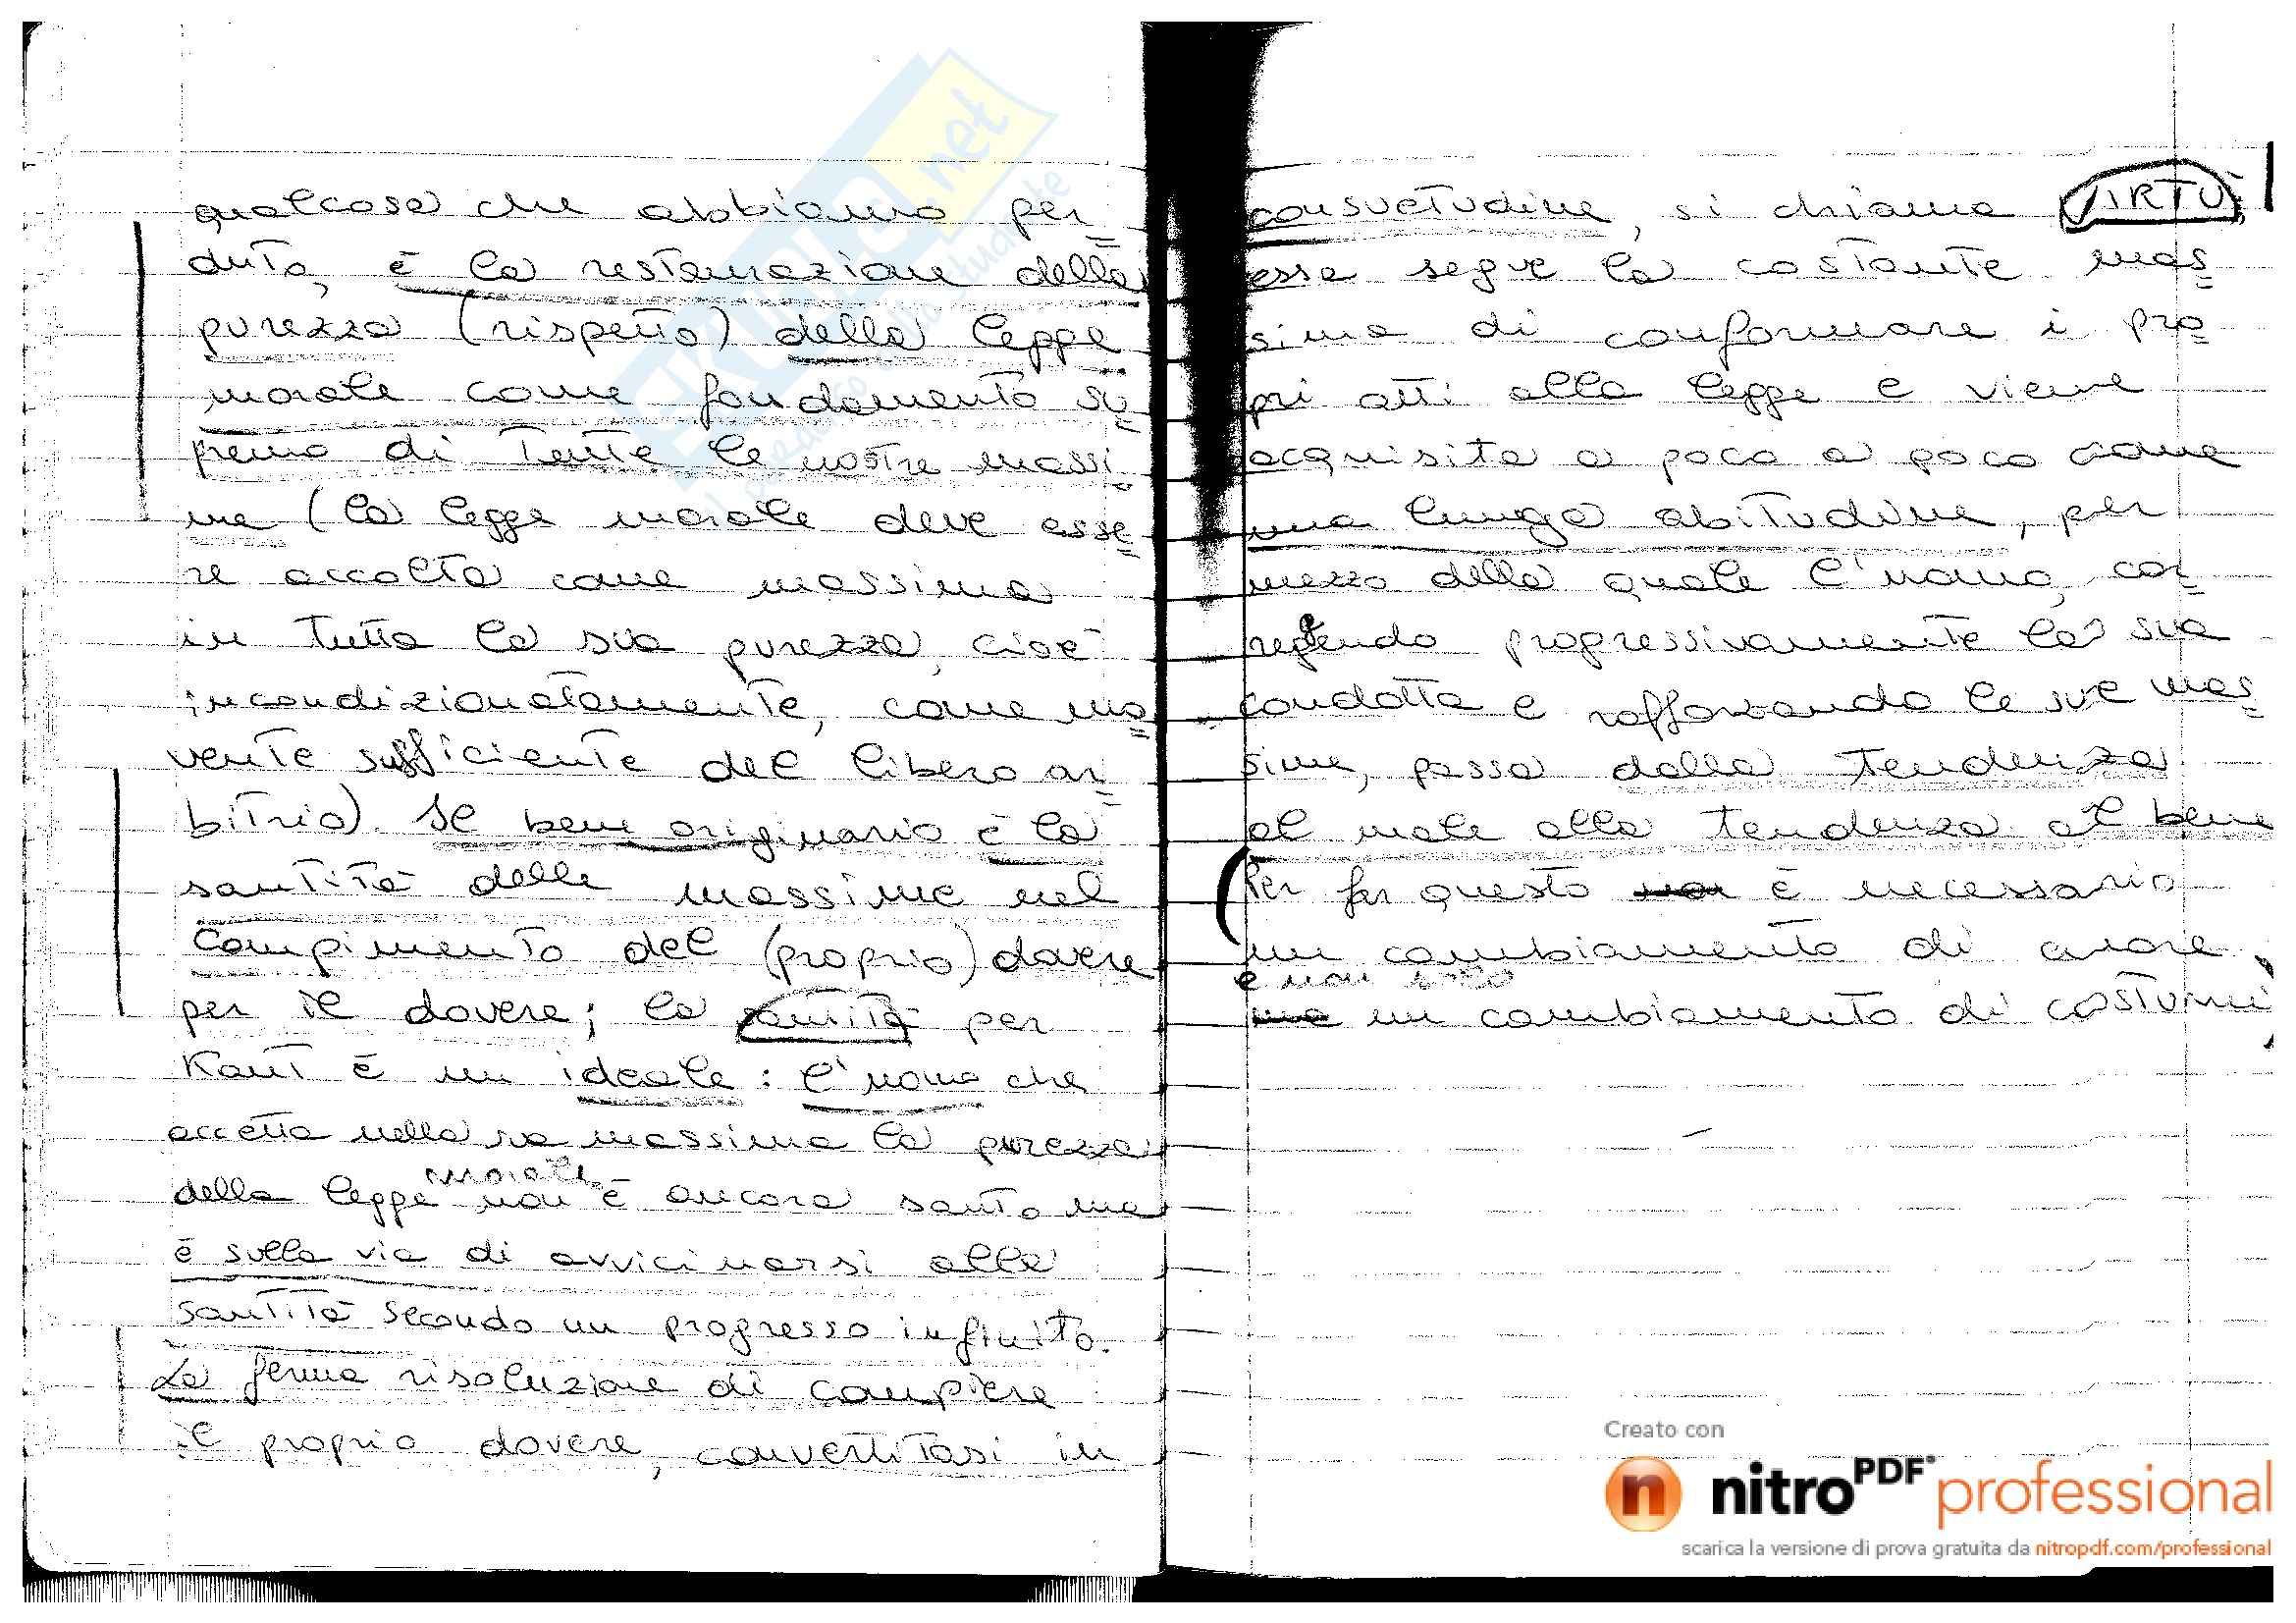 qualcosa che abbiamo per=
duto, è la restaurazione della
purezza (rispetto) della legge
morale come fondamento su=
premo di tutte le nostre massi=
me (la legge morale deve esse=
re accolta come massima
in tutta la sua purezza, cioè
incondizionatamente, come mo=
vente sufficiente del libero ar=
bitrio). Il bene originario è la
santità delle massime nel
compimento del (proprio) dovere
per il dovere; la santità per
Kant è un ideale: l'uomo che
accetta nella sua massima la purezza
della legge morale non è ancora santo ma
è sulla via di avvicinarsi alla
santità secondo un progresso infinito.
La ferma risoluzione di compiere
il proprio dovere, convertitasi in
consuetudine, si chiama VIRTÙ,
essa segue la costante mas=
sima di conformare i pro=
pri atti alla legge e viene
acquisita a poco a poco come
una lunga abitudine, per
mezzo della quale l'uomo, cor=
reggendo progressivamente la sua
condotta e rafforzando le sue mas=
sime, passa dalla tendenza
al male alla tendenza al bene
(Per far questo non è necessario
un cambiamento di cuore
e non solo
ma un cambiamento di costumi
Creato con
nitroPDF professional
scarica la versione di prova gratuita da nitropdf.com/professional